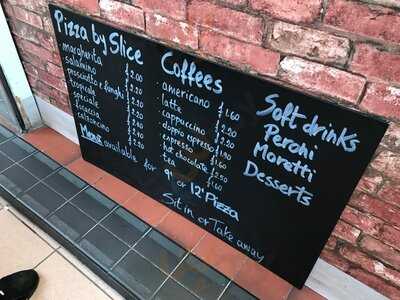 Pizza by Slice
margherita £2.00
salamino £2.50
prosciutto e funghi £2.50
tropicale £2.50
speciale £2.50
focaccia
calzone
Menu available for
9" or 12" Pizza
Sit in or Take away
Coffees
americano £1.60
latte £2.20
cappuccino £2.20
doppio espresso £1.90
espresso
hot chocolate £2.50
tea
Soft drinks
Peroni
Moretti
Desserts